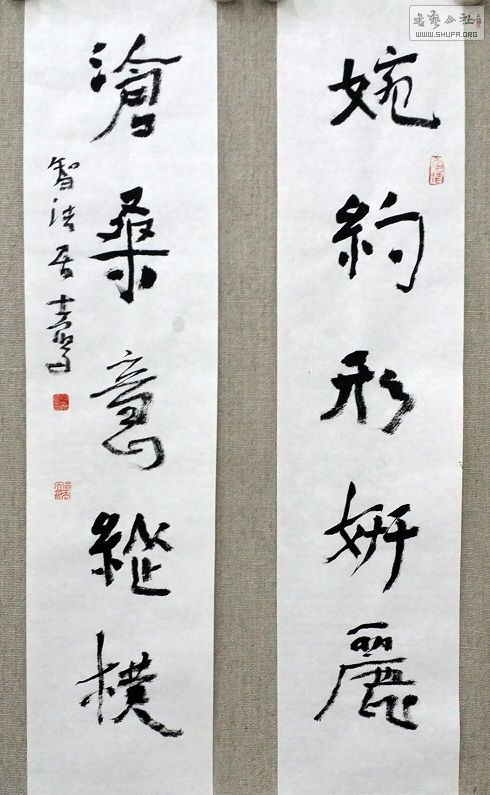 婉約形妍麗
滄桑意縱橫
智法居士
書藝公社
WWW.SHUFA.ORG